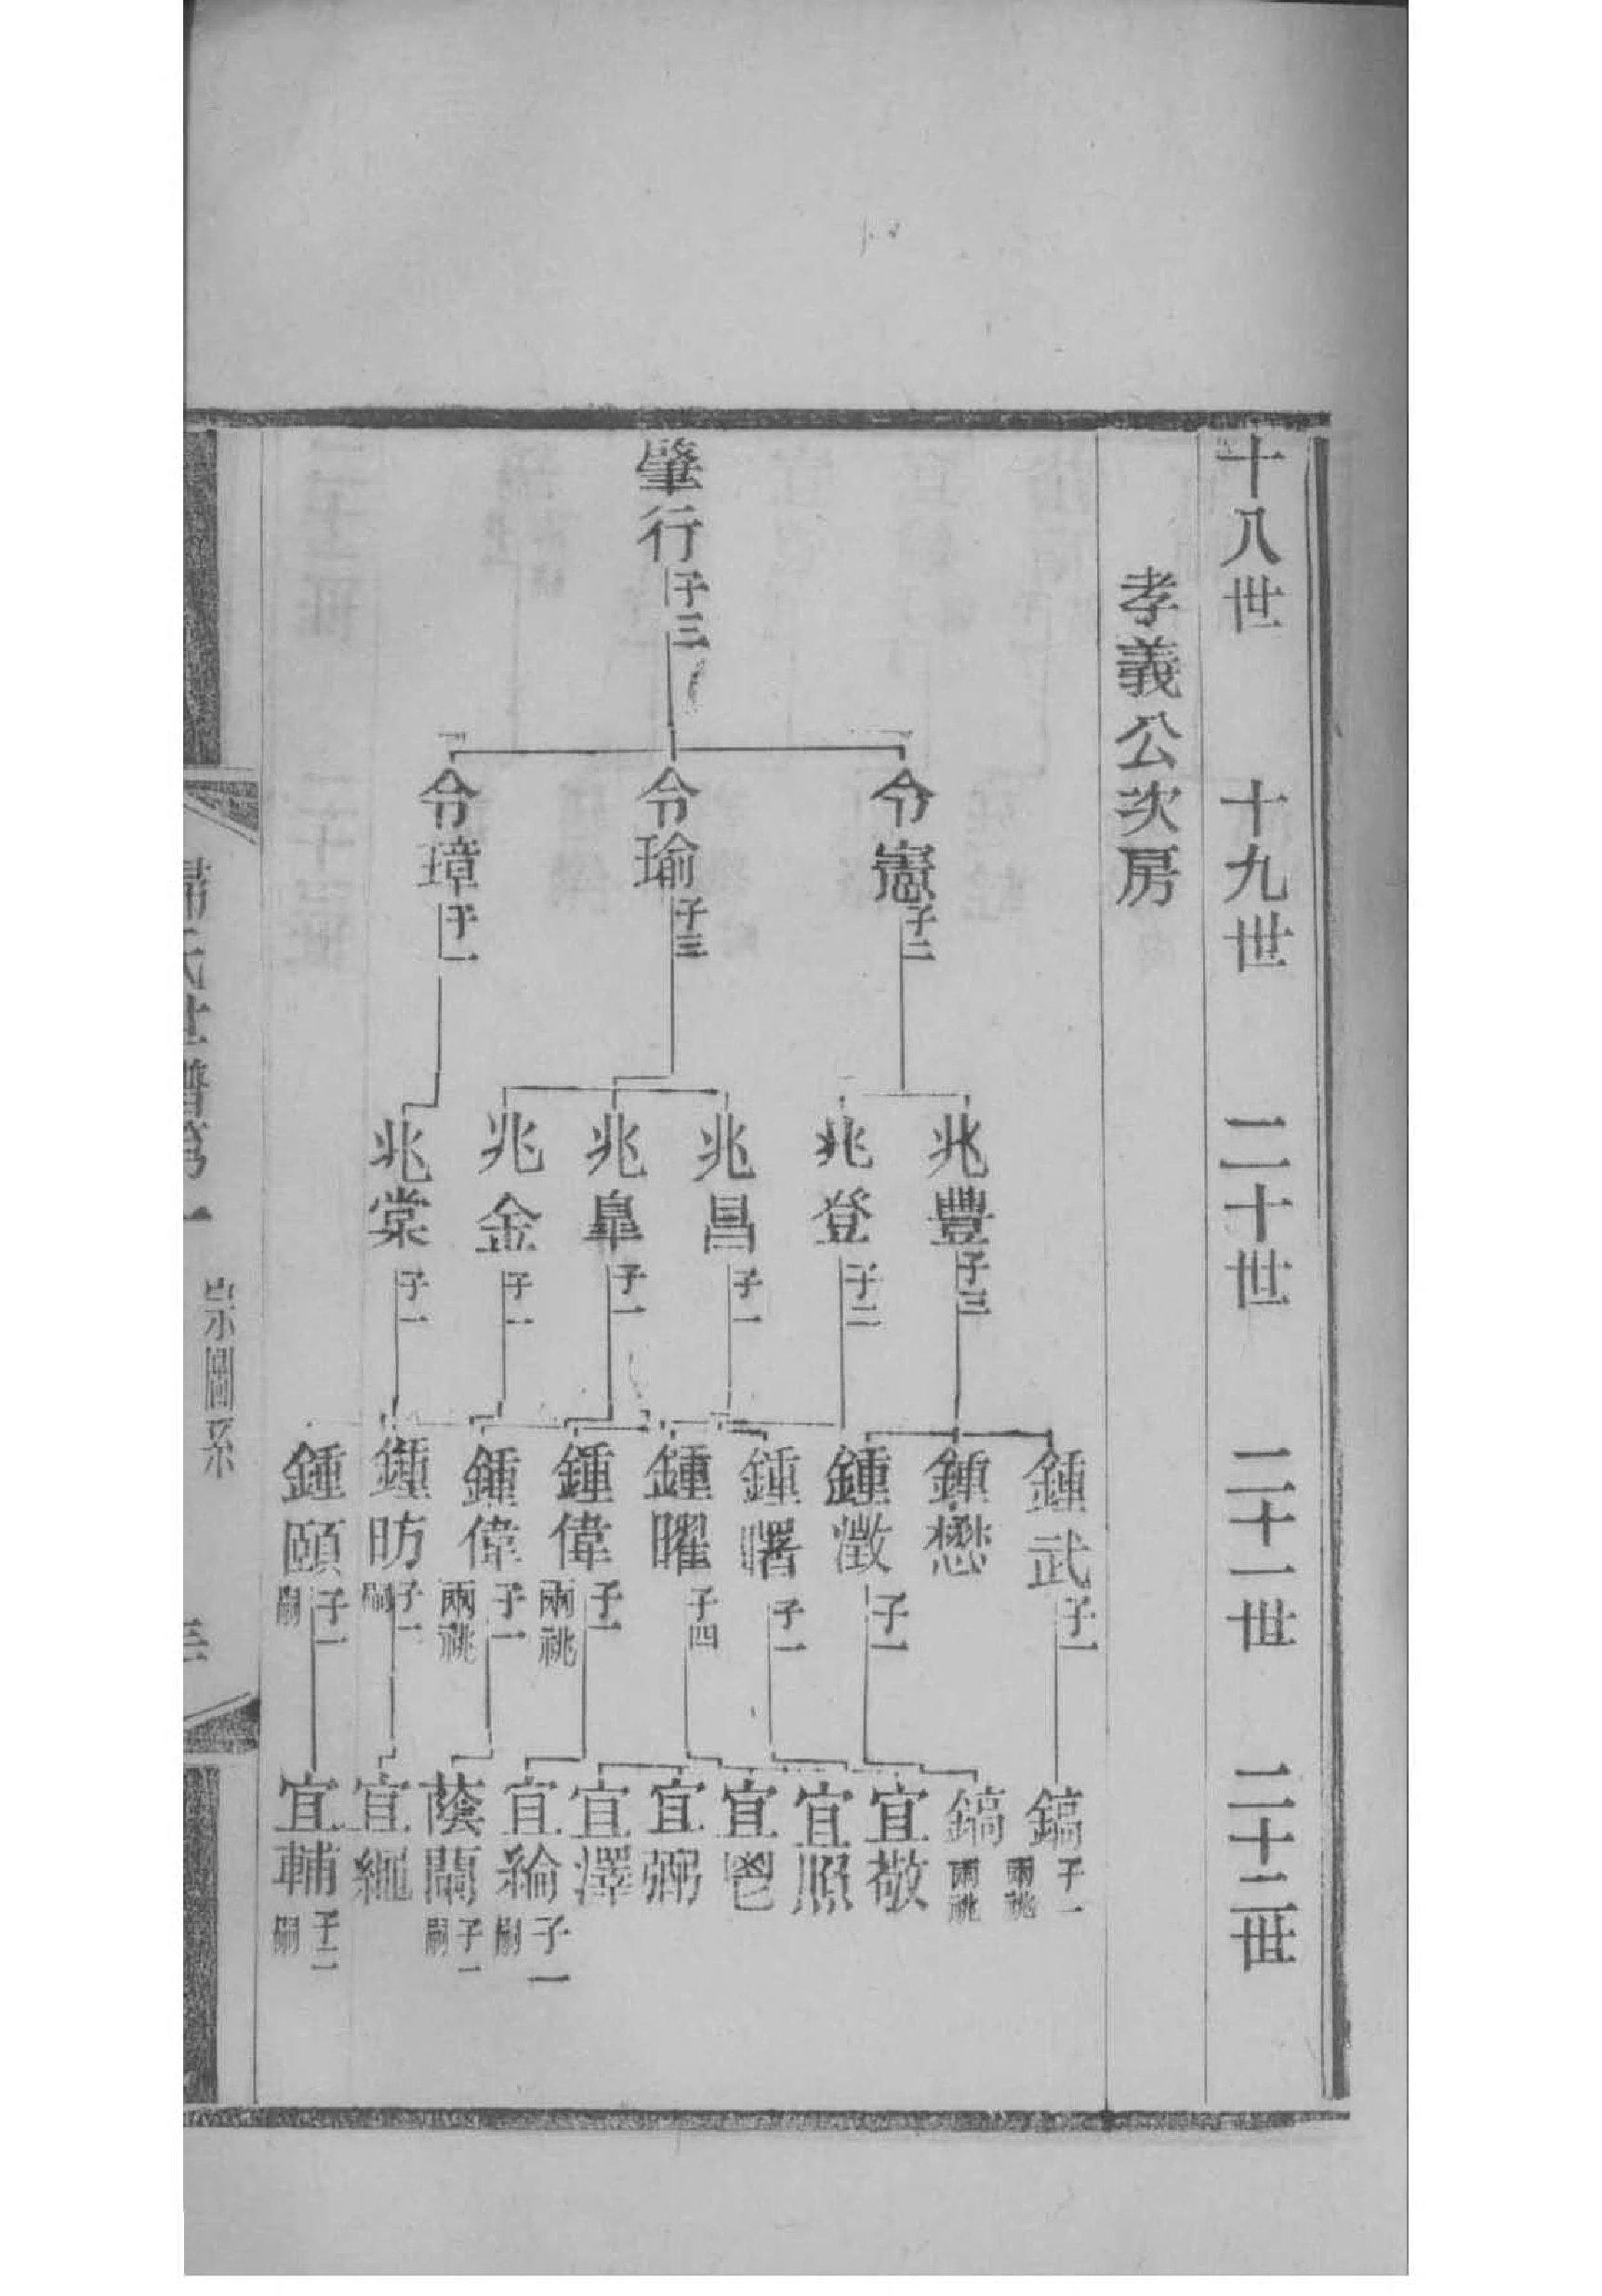 十八世 十九世 二十世 二十一世 二十二世
孝義公次房
肇行 子三
令憲 子二
令瑜 子三
令璋 子一
兆豐 子三
兆登 子二
兆昌 子一
兆皐 子一
兆金 子一
兆棠 子一
鍾武 子一
鍾懋
鍾澂 子一
鍾曙 子一
鍾曜 子四
鍾偉 子一 兩祧
鍾偉 子一 兩祧
鍾昉 子一 嗣
鍾頤 子一 嗣
鎬 子一 兩祧
鎬 兩祧
宜敬
宜照
宜鬯
宜弼
宜澤
宜綸 子一 嗣
蔭閶 子一 嗣
宜繩
宜輔 子二 嗣
氏世譜第一
宗圖系